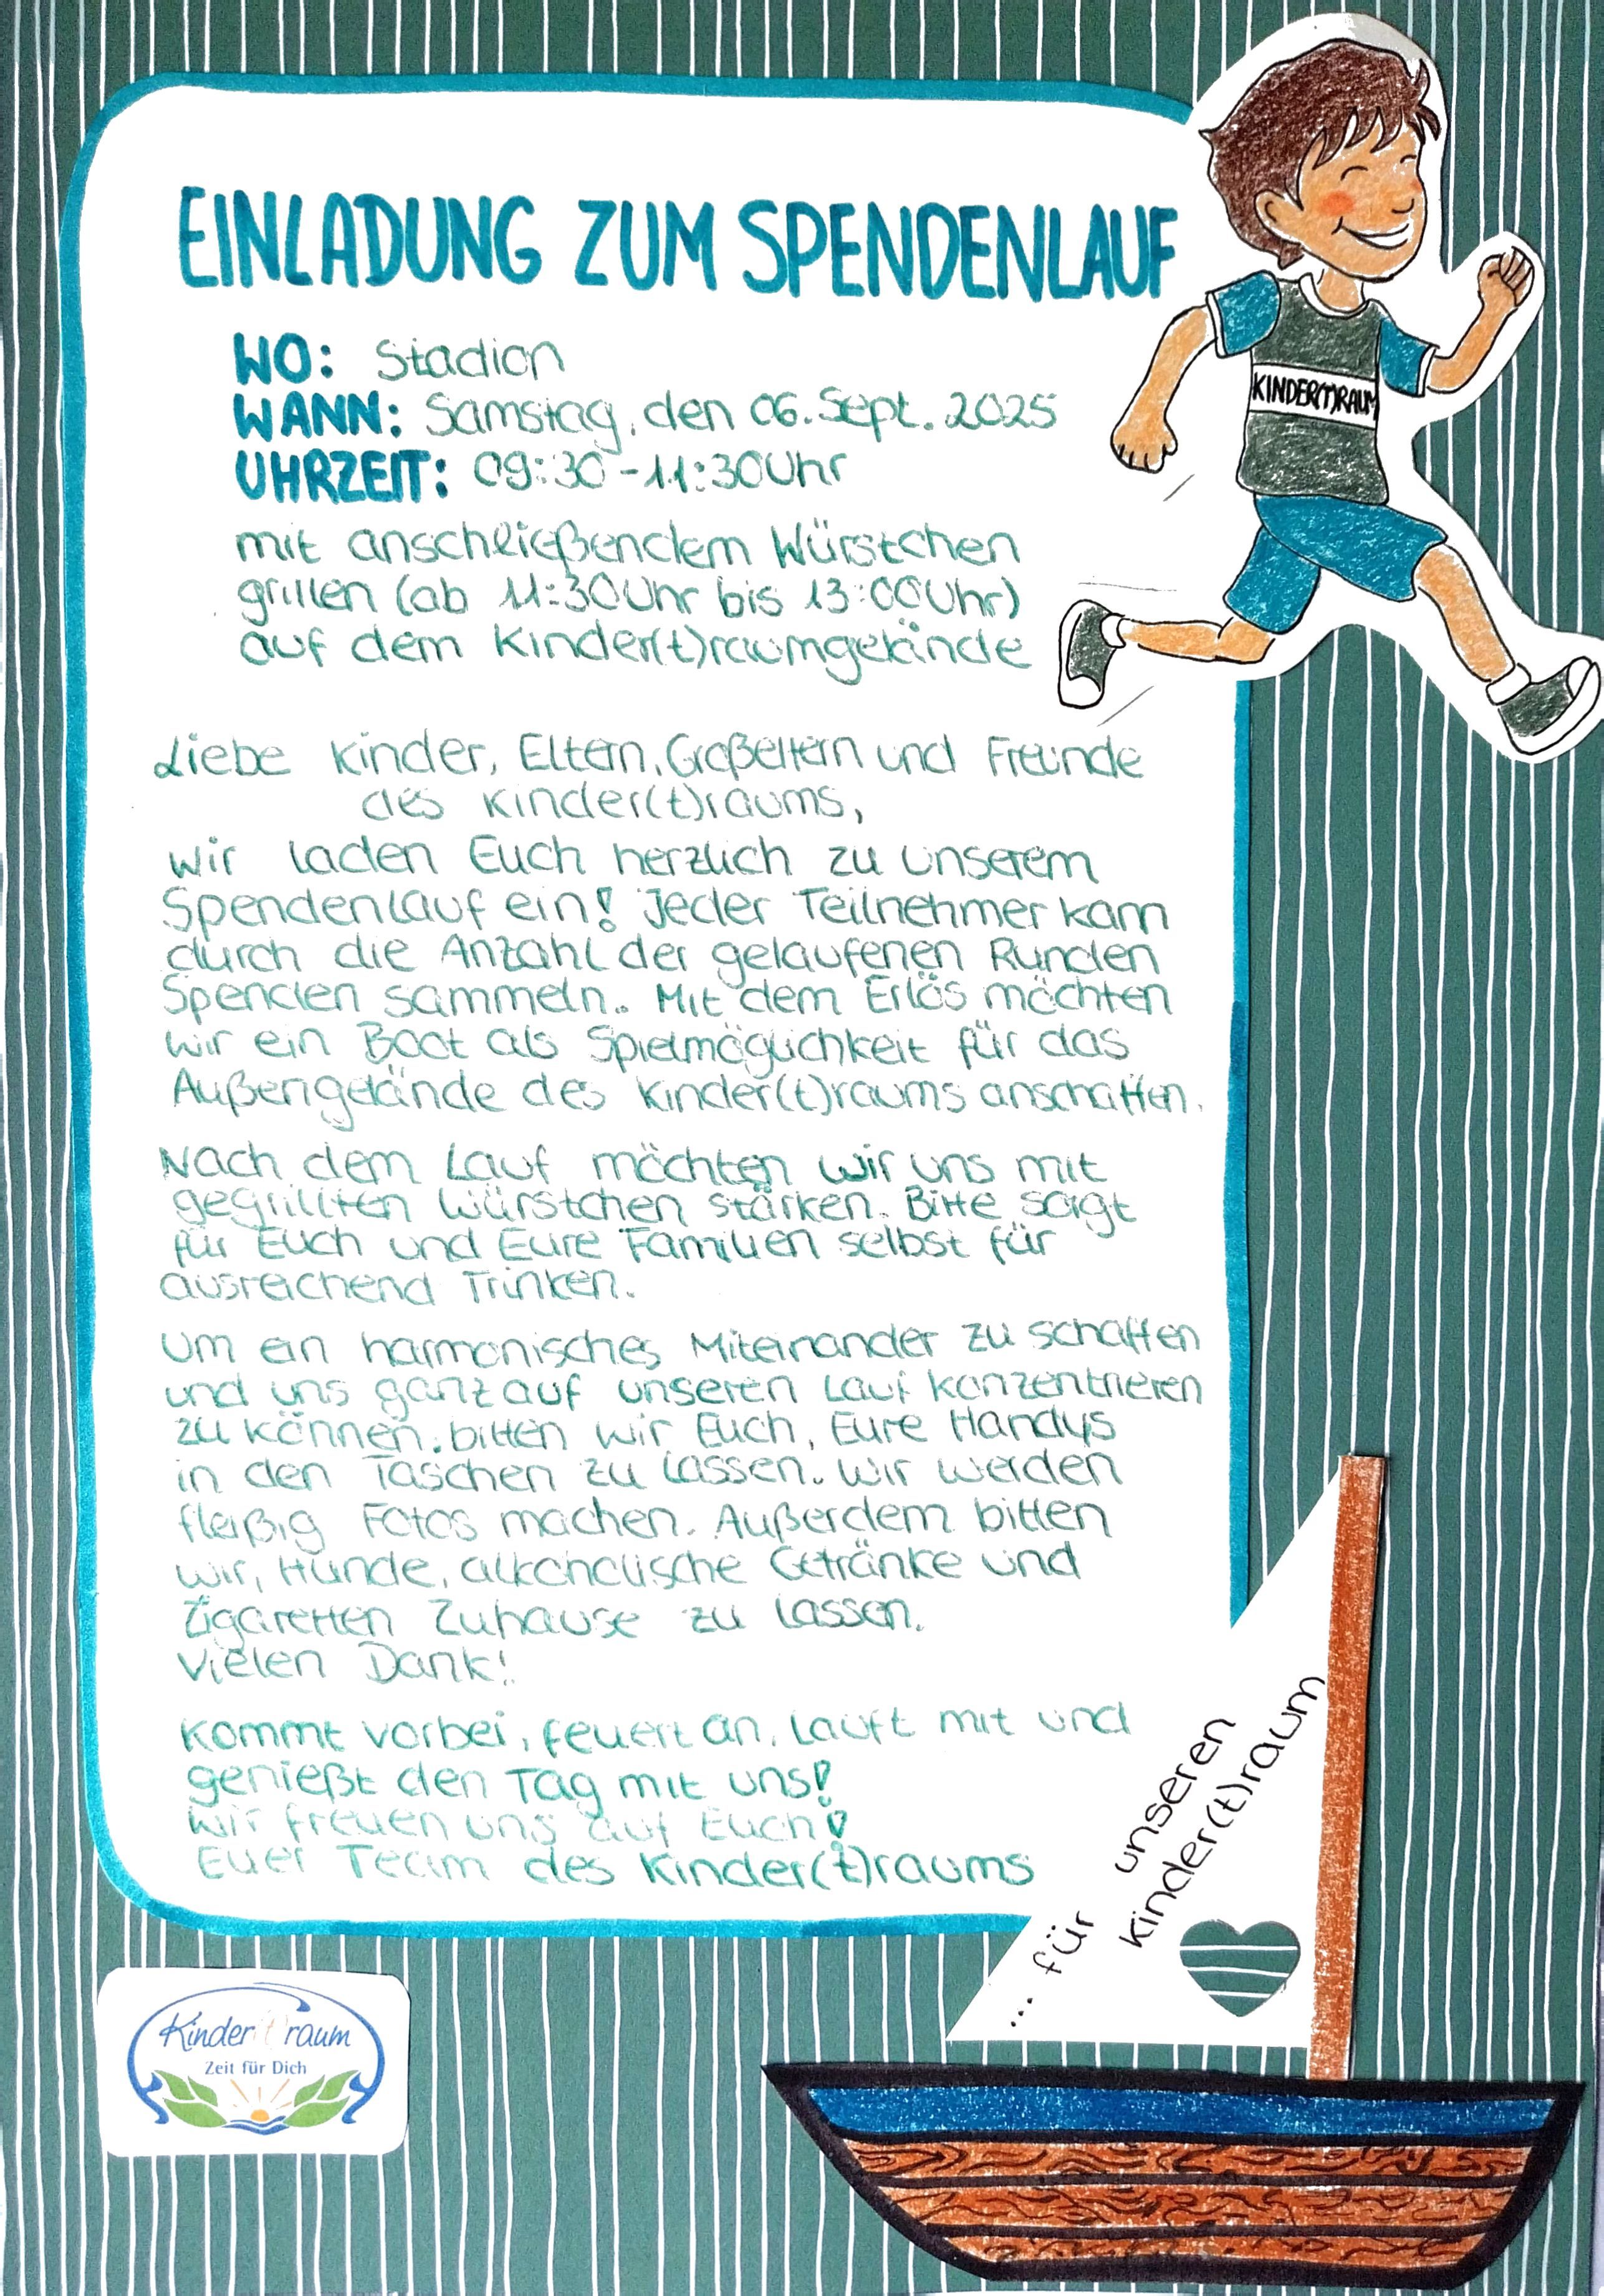 EINLADUNG ZUM SPENDENLAUF
WO: Stadion
WANN: Samstag, den 06. Sept. 2025
UHRZEIT: 09:30-11:30Uhr
mit anschließendem Würstchen
grillen (ab 11:30Uhr bis 13:00Uhr)
auf dem Kinder(t)raumgelände
KINDER(T)RAUM
Liebe Kinder, Eltern, Großeltern und Freunde
des Kinder(t)raums,
wir laden Euch herzlich zu unserem
Spendenlauf ein! Jeder Teilnehmer kann
durch die Anzahl der gelaufenen Runden
Spenden sammeln. Mit dem Erlös möchten
wir ein Boot als Spielmöglichkeit für das
Außengelände des Kinder(t)raums anschaffen.
Nach dem Lauf möchten wir uns mit
gegrillten Würstchen stärken. Bitte sorgt
für Euch und Eure Familien selbst für
ausreichend Trinken.
Um ein harmonisches Miteinander zu schaffen
und uns ganz auf unseren Lauf konzentrieren
zu können, bitten wir Euch, Eure Handys
in den Taschen zu lassen. Wir werden
fleißig Fotos machen. Außerdem bitten
wir, Hunde, alkoholische Getränke und
Zigaretten Zuhause zu lassen.
Vielen Dank!
Kommt vorbei, feuert an, lauft mit und
genießt den Tag mit uns!
Wir freuen uns auf Euch!
Euer Team des Kinder(t)raums
... für unseren
Kinder(t)raum
Kinder(t)raum
Zeit für Dich